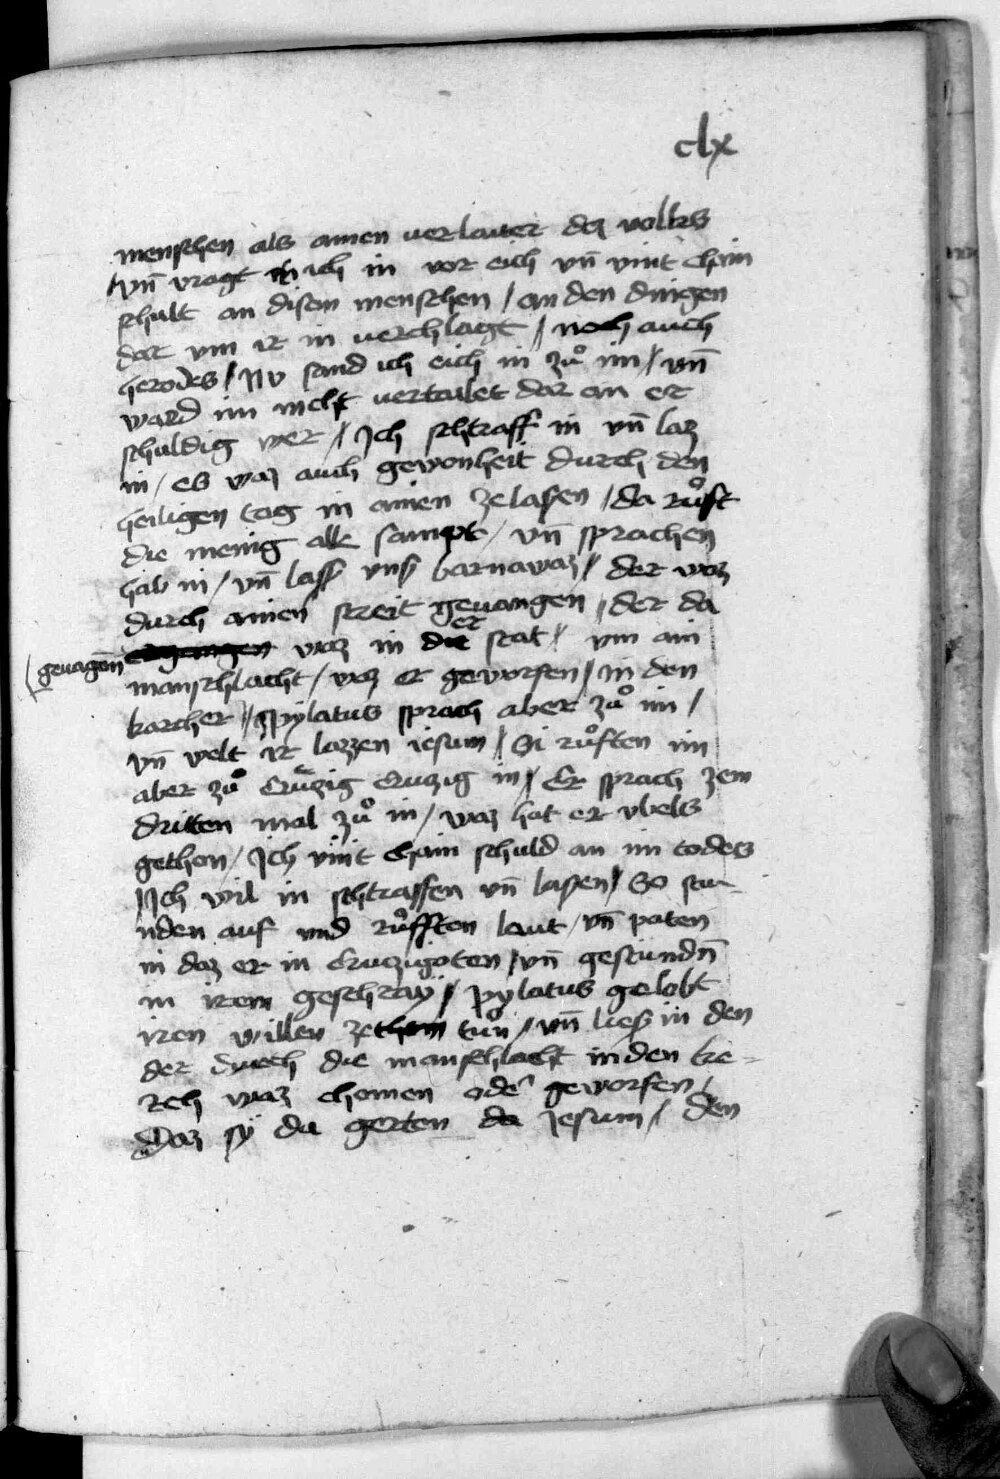 clx
menschen als ainen verlaiter dez volkes
vn̄ vragt ich in vor eich vn̄ vint chain
schult an disem menschen / an den dingen
dar vm ir in verchlagt // noch auch
herodes // Nv sand ich eich in zuͦ im // vn̄
ward im nicht vertailet dar an er
schuldig wer // Ich schtraff in vn̄ laz
in / es waz auch gewonheit durch den
heiligen tag in ainen zelasen / da ruͦft
die menig alle sampt / vn̄ sprachen
hab in / vn̄ lass vns barnawaz // der waz
durch ainen streit gevangen / der da
gevagen̄ waz in der stat // vm ain
manschlacht / waz er geworfen // in den
karcher // Pylatus sprach aber zuͦ im /
vn̄ welt ir lazzen iesum // Si ruͦften im
aber zuͦ Cruczig Cruczig in // Er sprach zem
dritten mal zuͦ in / waz hat er vbels
gethon / Ich vint chain schuld an im todes
Ich wil in schtraffen vn̄ lasen // So stu-
nden auf vnd ruͦfften laut / vn̄ paten
in daz er in Cruczigoten // vn̄ gestundn̄
in irem geschray // Pylatus gelobt
iren willen ze tuͦn // vn̄ lies in den
der durch die manschlacht in den ke-
rch waz chomen oder geworfen /
Daz sy da gerten Jesum / den